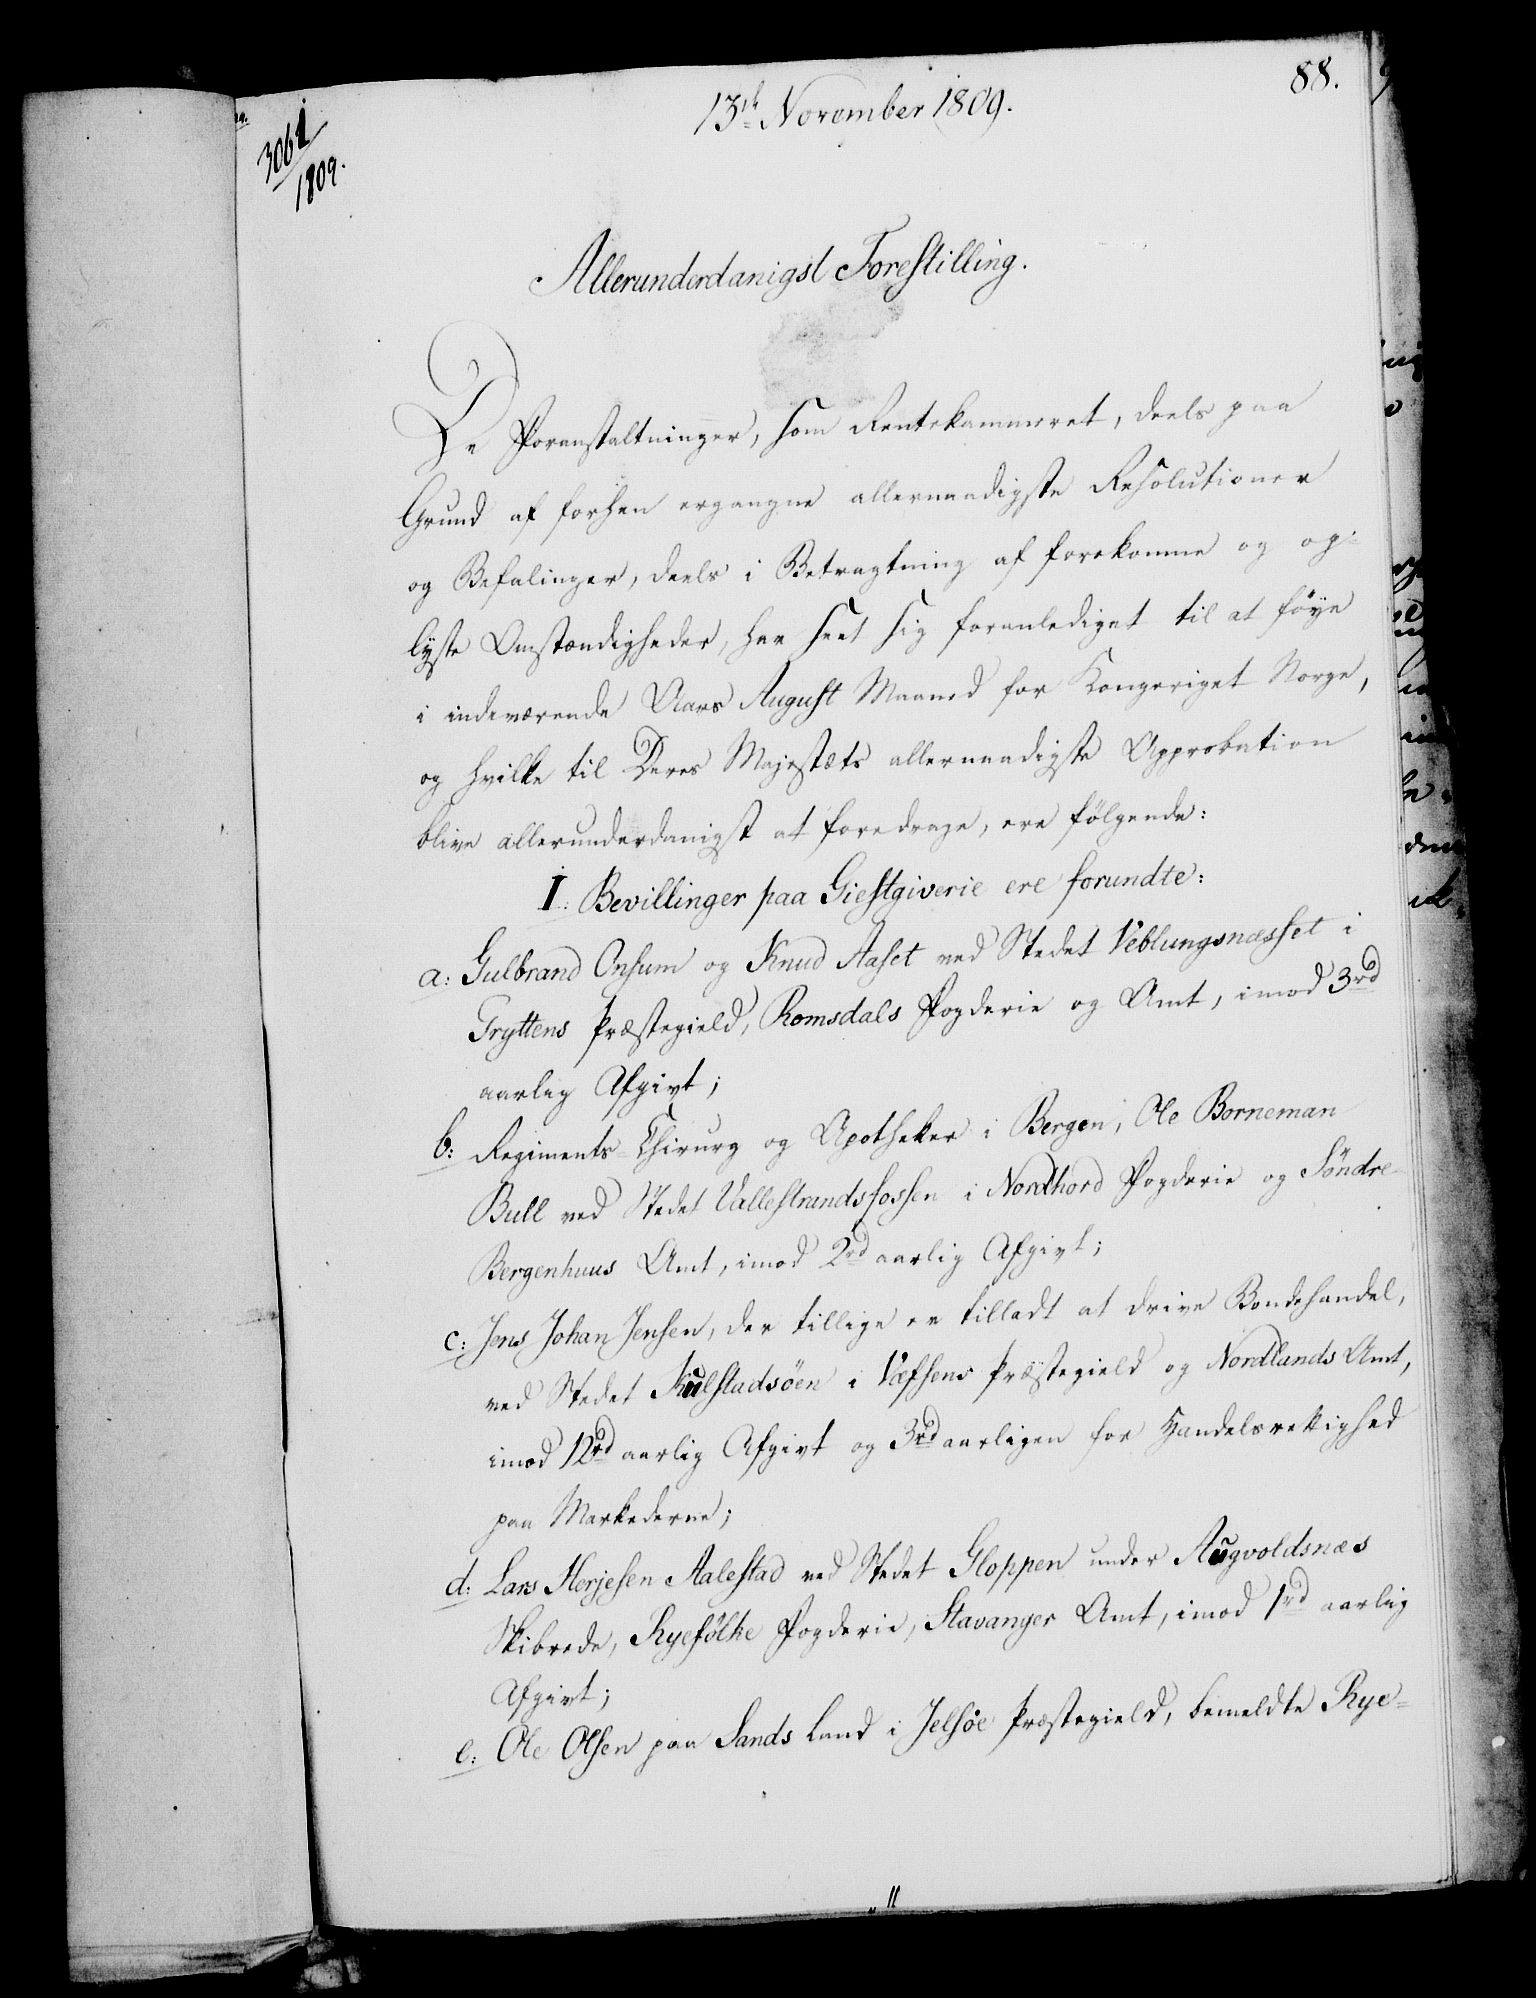 88.
13de November 1809.
3061/1809.
Allerunderdanigst Forestilling.
De Foranstaltninger, som Rentekammeret, deels paa
Grund af forhen ergangne allernaadigste Resolutioner
og Befalinger, deels i Betragtning af forekomne og op-
lyste Omstændigheder, har seet sig foranlediget til at føye
i indeværende Aars August Maaned for Kongeriget Norge,
og hvilke til Deres Majestæts allernaadigste Approbation
blive allerunderdanigst at foredrage, ere følgende:
I. Bevillinger paa Giestgiverie ere forundte:
a: Gulbrand Onsum og Knud Aaset ved Stedet Veblungsnæsset i
Gryttens Præstegield, Romsdals Fogderie og Amt, imod 3rd
aarlig Afgivt;
b: Regiments-Chirurg og Apotheker i Bergen, Ole Borneman
Bull ved Stedet Vallestrandsfossen i Nordhord Fogderie og Söndre
Bergenhuus Amt, imod 2rd aarlig Afgivt;
c: Jens Johan Jensen, der tillige er tilladt at drive Bondehandel,
ved Stedet Kulstadsöen i Vefsens Præstegield og Nordlands Amt,
imod 12rd aarlig Afgivt og 3rd aarligen for Handelsrettighed
paa Markederne;
d: Lars Herjesen Aalestad ved Stedet Gloppen under Augvoldsnæs
Skibrede, Ryefölke Fogderie, Stavanger Amt, imod 1rd aarlig
Afgivt;
e: Ole Olsen paa Sands Land i Jelsöe Præstegield, bemeldte Rye-